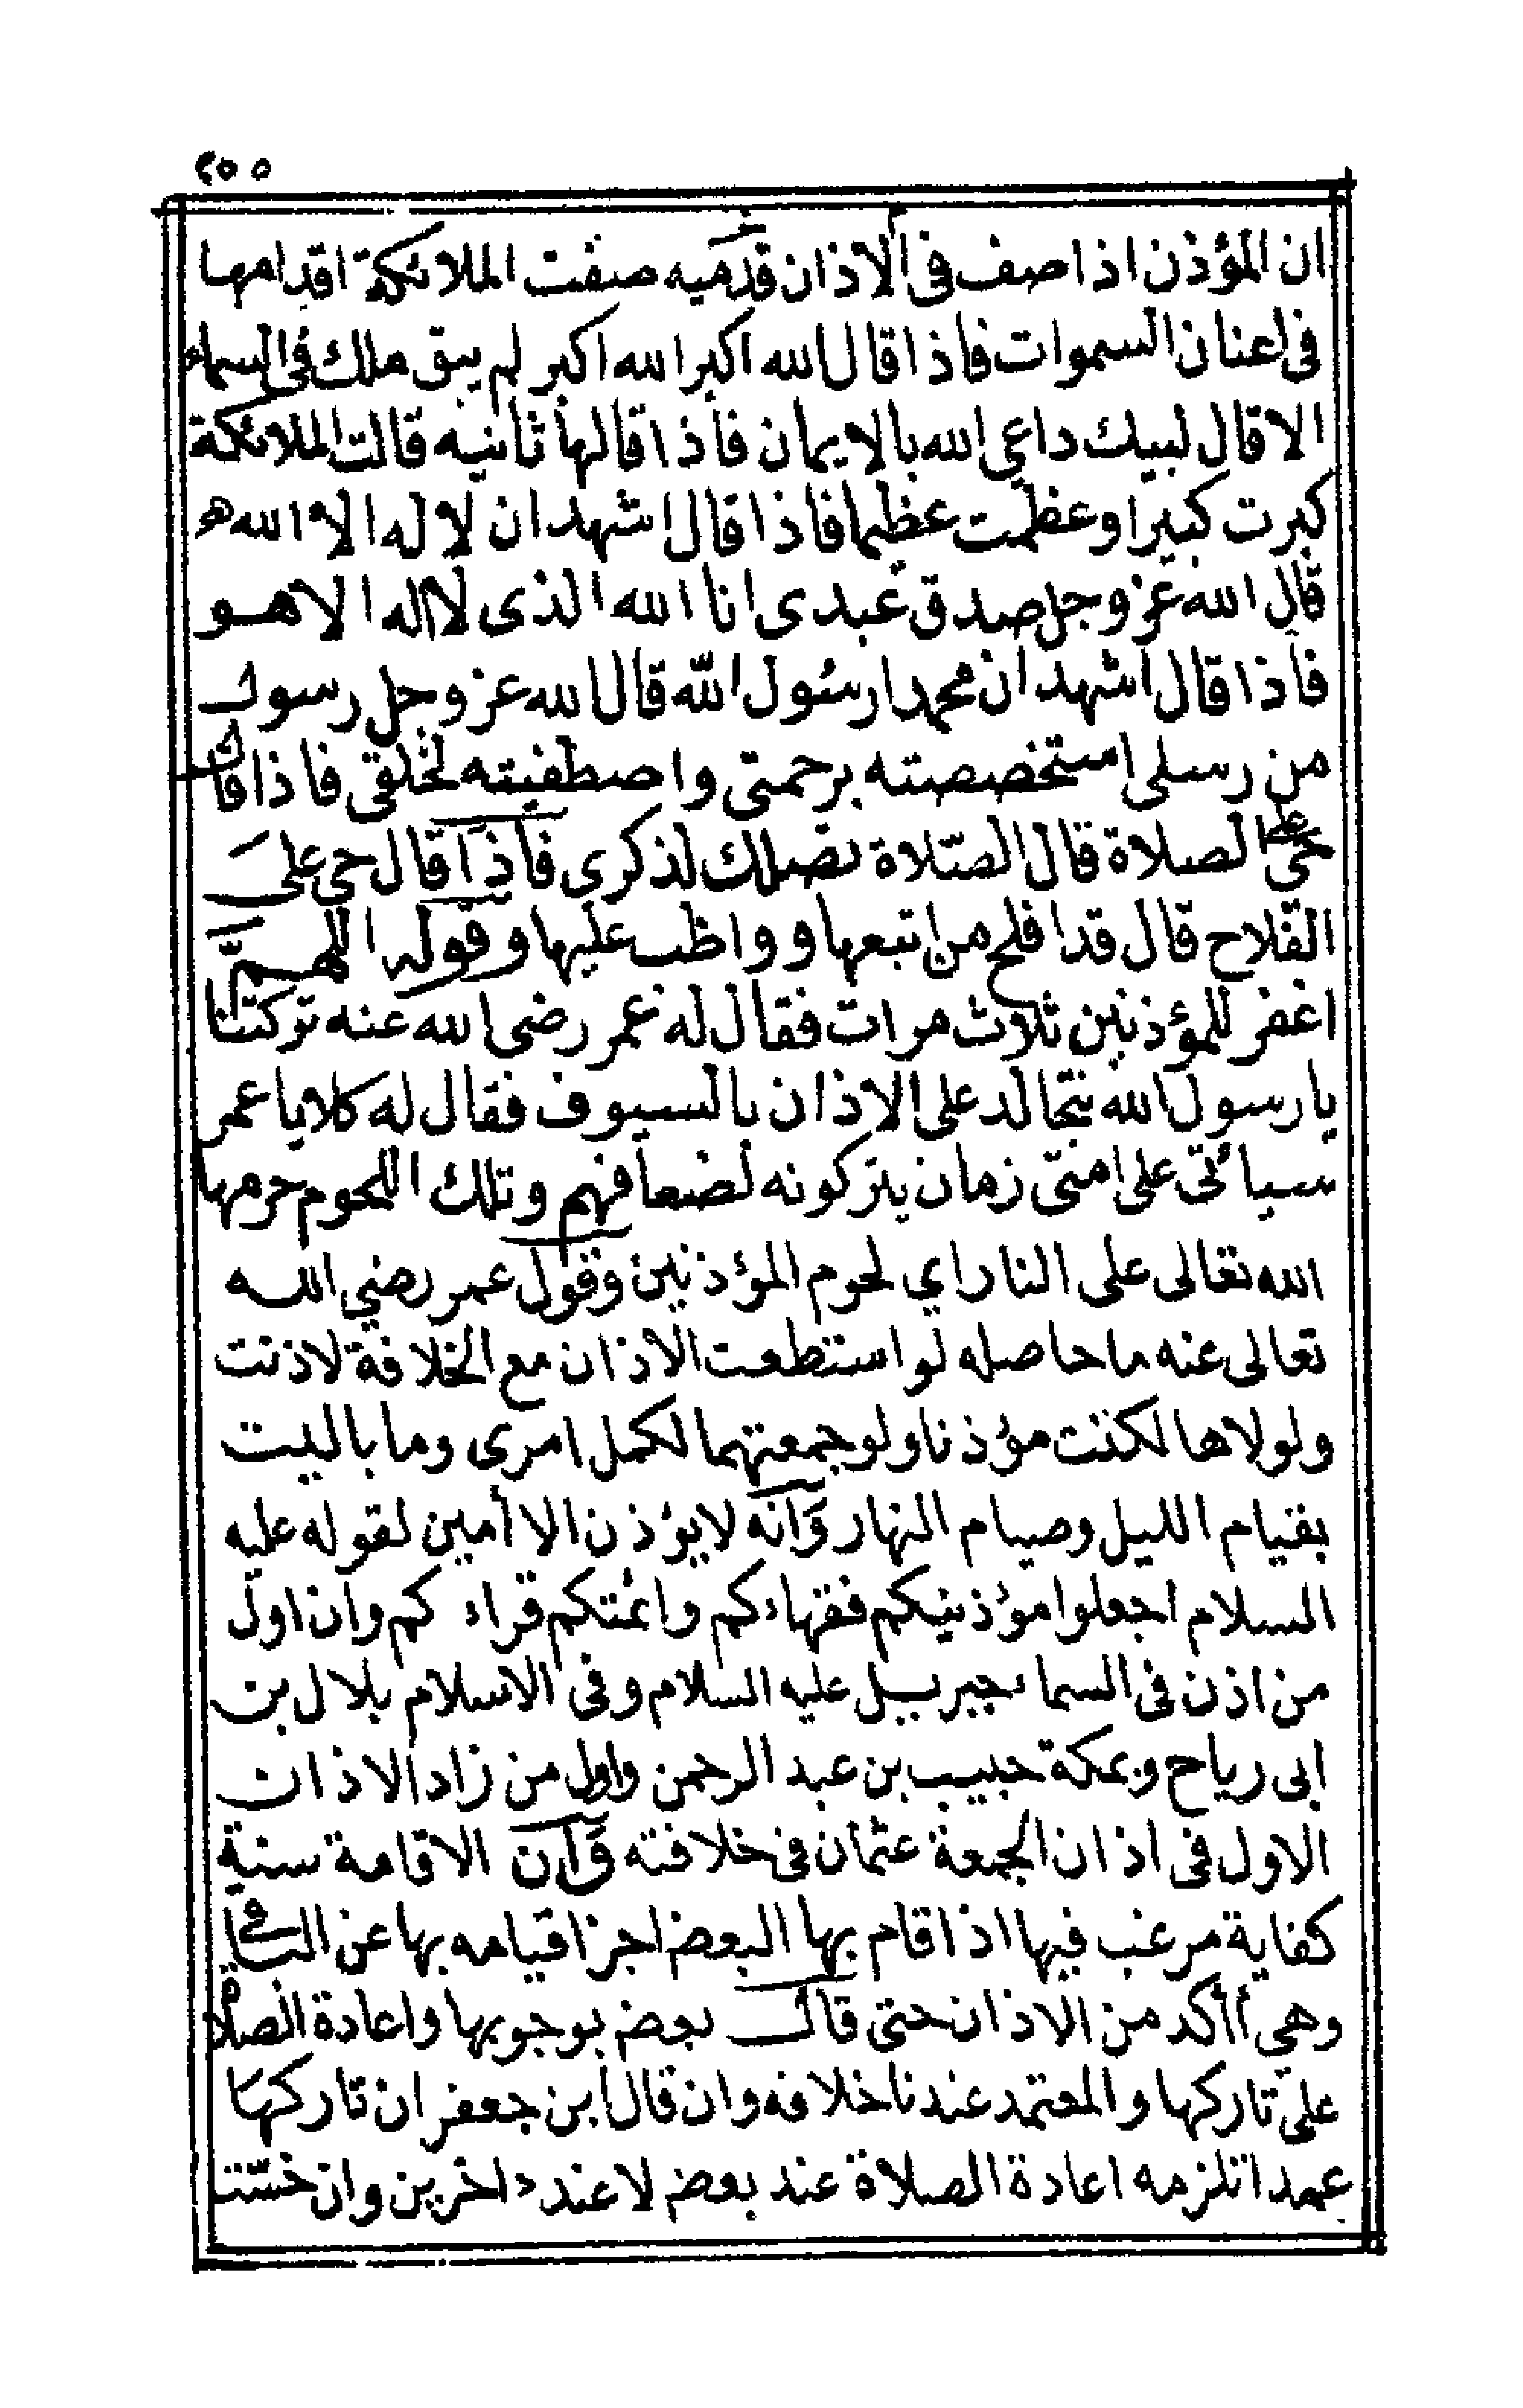 ٢٥٥
ان المؤذن اذا صف فى الاذان قدميه صفت الملائكة اقدامها
فى اعنان السموات فاذا قال الله اكبر الله اكبر لم يبق ملك فى السماء
الا قال لبيك داعي الله بالايمان فاذا قالها ثانيه قالت الملائكة
كبرت كبيرا وعظمت عظيما فاذا قال اشهد ان لا له الا الله
قال الله عز وجل صدق عبدى انا الله الذى لا اله الا هو
فاذا قال اشهد ان محمدا رسول الله قال الله عز وجل رسول
من رسلى استخصصته برحمتى واصطفيته لخلقى فاذا قال
حي على الصلاة قال الصلاة لذكرى فاذا قال حى على
الفلاح قال قد افلح من اتبعها وواظب عليها وقوله اللهم
اغفر للمؤذنين ثلاث مرات فقال له عمر رضى الله عنه تركتنا
يا رسول الله نتجالد على الاذان بالسيوف فقال له كلا يا عمر
سيأتى على امتى زمان يتركونه لضعافهم وتلك اللحوم حرمها
الله تعالى على النار اي لحوم المؤذنين وقول عمر رضي الله
تعالى عنه ما حاصله لو استطعت الاذان مع الخلافة لاذنت
ولولاها لكنت مؤذنا ولو جمعتهما لكمل امرى وما باليت
بقيام الليل وصيام النهار وانه لا يؤذن الا أمين لقوله عليه
السلام اجعلوا مؤذنيكم فقهاءكم وائمتكم قراءكم وان اول
من اذن فى السماء جبريل عليه السلام وفى الاسلام بلال بن
ابى رباح وبمكة حبيب بن عبد الرحمن واول من زاد الاذان
الاول فى اذان الجمعة عثمان فى خلافته وان الاقامة سنة
كفاية مرغب فيها اذا قام بها البعض اجزا قيامه بها عن الباقى
وهي أاكد من الاذان حتى قال بعض بوجوبها واعادة الصلاة
على تاركها والمعتمد عندنا خلافه وان قال ابن جعفر ان تاركها
عمدا تلزمه اعادة الصلاة عند بعض لا عند ءاخرين وان خشت